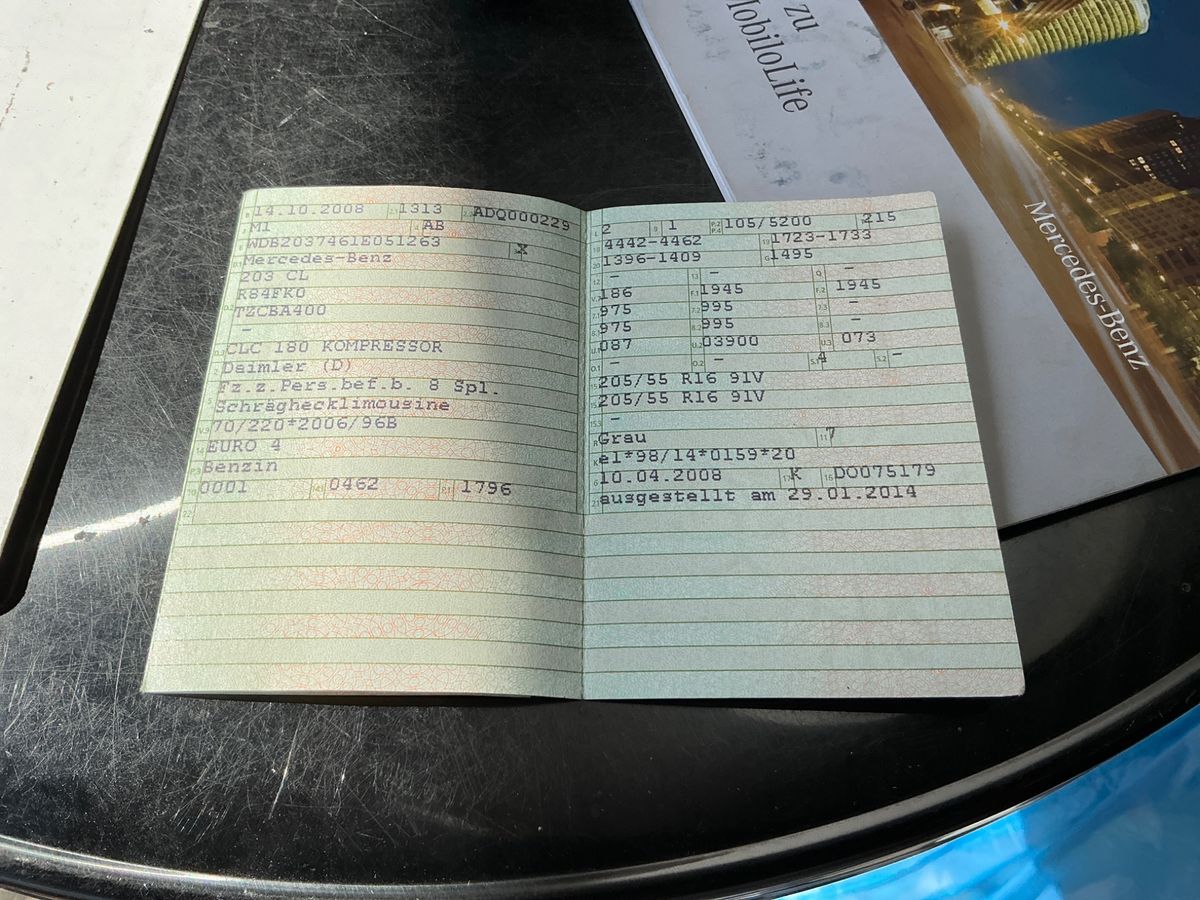 zu
MobiloLife
Mercedes-Benz
14.10.2008 1313 ADQ000229
M1 AB
WDB2037461E051263 X
Mercedes-Benz
203 CL
R84FK0
TZCBA400
–
CLC 180 KOMPRESSOR
Daimler (D)
Fz.z.Pers.bef.b. 8 Spl.
Schräghecklimousine
70/220*2006/96B
EURO 4
Benzin
0001 0462 1796
2 1 105/5200 215
4442-4462 1723-1733
1396-1409 1495
– – –
186 1945 1945
975 995 –
975 995 –
087 03900 073
– – 4 –
205/55 R16 91V
205/55 R16 91V
–
Grau 7
e1*98/14*0159*20
10.04.2008 K DO075179
ausgestellt am 29.01.2014